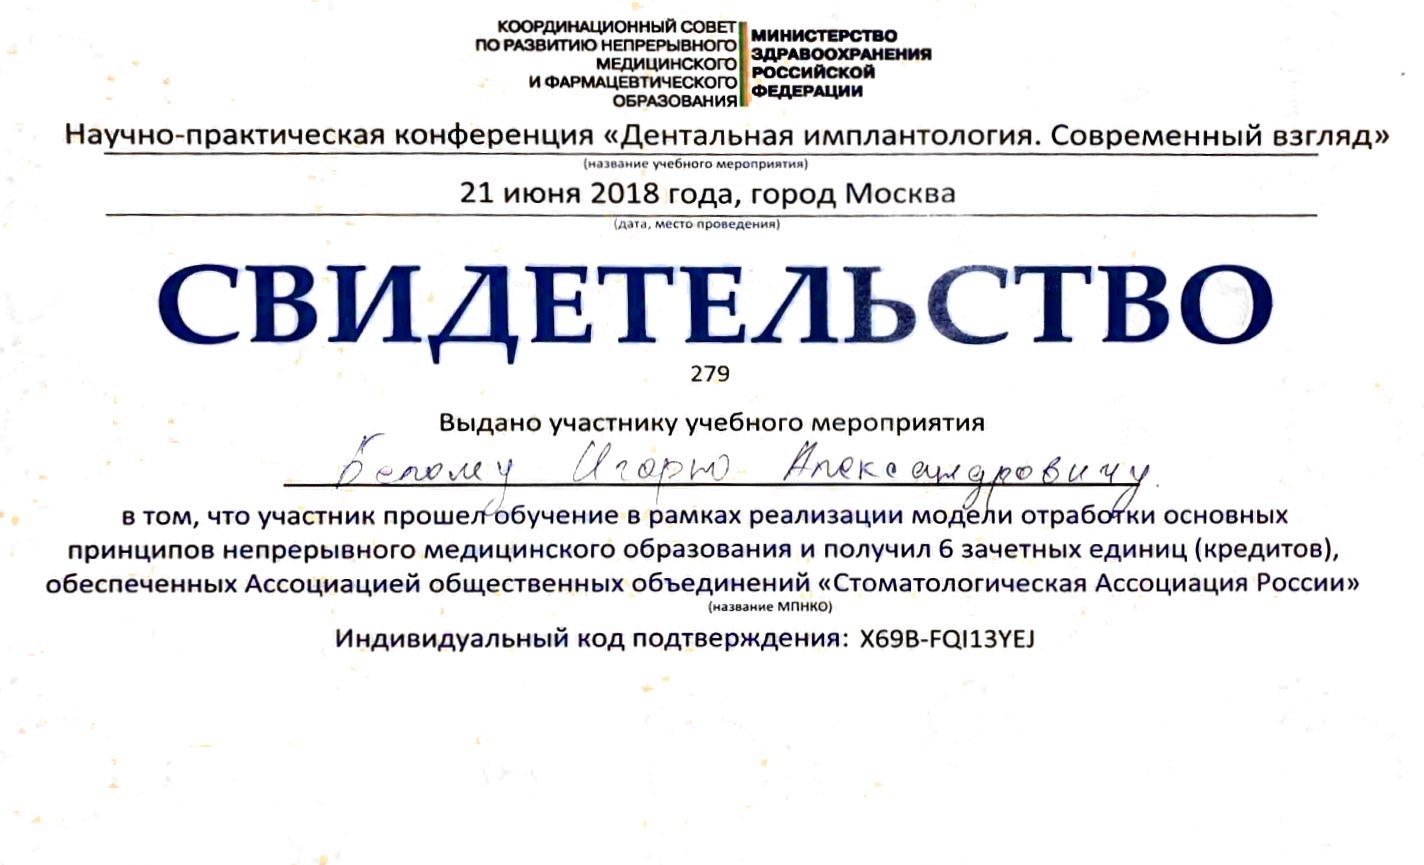 КООРДИНАЦИОННЫЙ СОВЕТ
ПО РАЗВИТИЮ НЕПРЕРЫВНОГО
МЕДИЦИНСКОГО
И ФАРМАЦЕВТИЧЕСКОГО
ОБРАЗОВАНИЯ
МИНИСТЕРСТВО
ЗДРАВООХРАНЕНИЯ
РОССИЙСКОЙ
ФЕДЕРАЦИИ
Научно-практическая конференция «Дентальная имплантология. Современный взгляд»
(название учебного мероприятия)
21 июня 2018 года, город Москва
(дата, место проведения)
СВИДЕТЕЛЬСТВО
279
Выдано участнику учебного мероприятия
Белому Игорю Александровичу.
в том, что участник прошел обучение в рамках реализации модели отработки основных
принципов непрерывного медицинского образования и получил 6 зачетных единиц (кредитов),
обеспеченных Ассоциацией общественных объединений «Стоматологическая Ассоциация России»
(название МПНКО)
Индивидуальный код подтверждения: X69B-FQI13YEJ